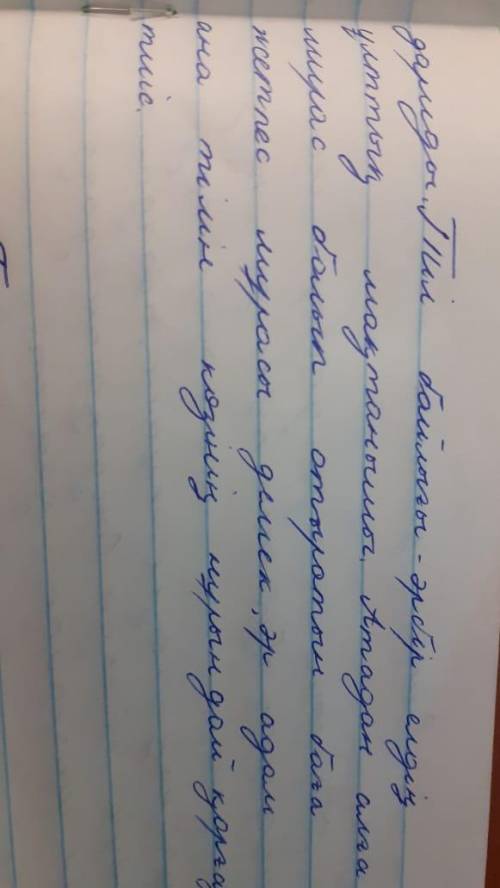 дариды. Тіл байлығы - әрбір елдің
ұлттық мақтанышы. Атадан алға
мирас болып отыратын баға
жетпес мұрасы демек, әр адам
ана тілін көзінің нұрындай қорға
тиіс.